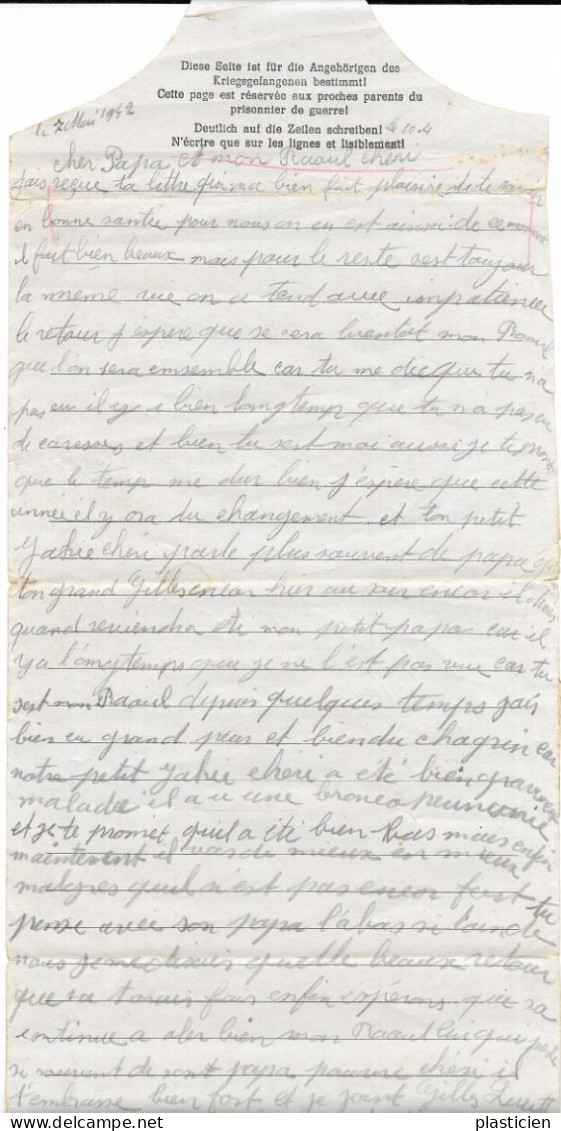 Diese Seite ist für die Angehörigen des
Kriegsgefangenen bestimmt!
Cette page est réservée aux proches parents du
prisonnier de guerre!
Deutlich auf die Zeilen schreiben!
N'écrire que sur les lignes et lisiblement!
le 7 Mai 1942
le 10.4
cher Papa et mon Raoul chéri
jais reçue ta lettre qui ma bien fait plaisire de te savoir
en bonne santée pour nous on en est ainsi de ce moment
il fait bien beaux mais pour le reste sest toujour
la même vie on a tend avec impatience
le retour j'espère que se cera bientôt mon Raoul
que l'on sera emsemble car tu me die que tu n'a
pas eu il y a bien longtemp que tu n'a pas eu
de caresses et bien tu sest moi aussi je te promet
que le temp me dur bien j'espère que cette
année il y ora du changement et ton petit
chéri parle plus souvent de papa
ton grand Gilles encor hier au soir encor il
quand reviendra mon petit papa car il
y a l'ongtemps que je ne l'est pas vue car tu
sest mon Raoul depuis quelques temps jais
bien eu grand peur et bien du chagrin car
notre petit chéri a été bien gravement
malade il a u une bronco pneumonie
et je te promet quil a été bien bas mais enfin
maintenent il vas de mieux en mieux
malgres quil n'est pas encor fort tu
pense avec son papa l'abas si loin de
nous quelle beaux retour
que sa fais enfin espérons que sa
continue a aler bien mon Raoul lui qui parle
si souvent de son papa pauvre chéri il
t'embrasse bien fort et je joint Gilles
plasticien